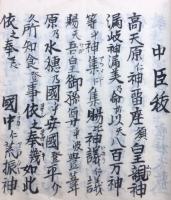 中臣祓
高天原仁神留座須皇親神
漏岐神漏美乃命以天八百万神
等
神集仁集賜比神議仁議
賜天
我皇御孫
原乃水穂乃國平安國登平介久
所知食登事依之奉岐如此
依之奉志國中仁荒振神